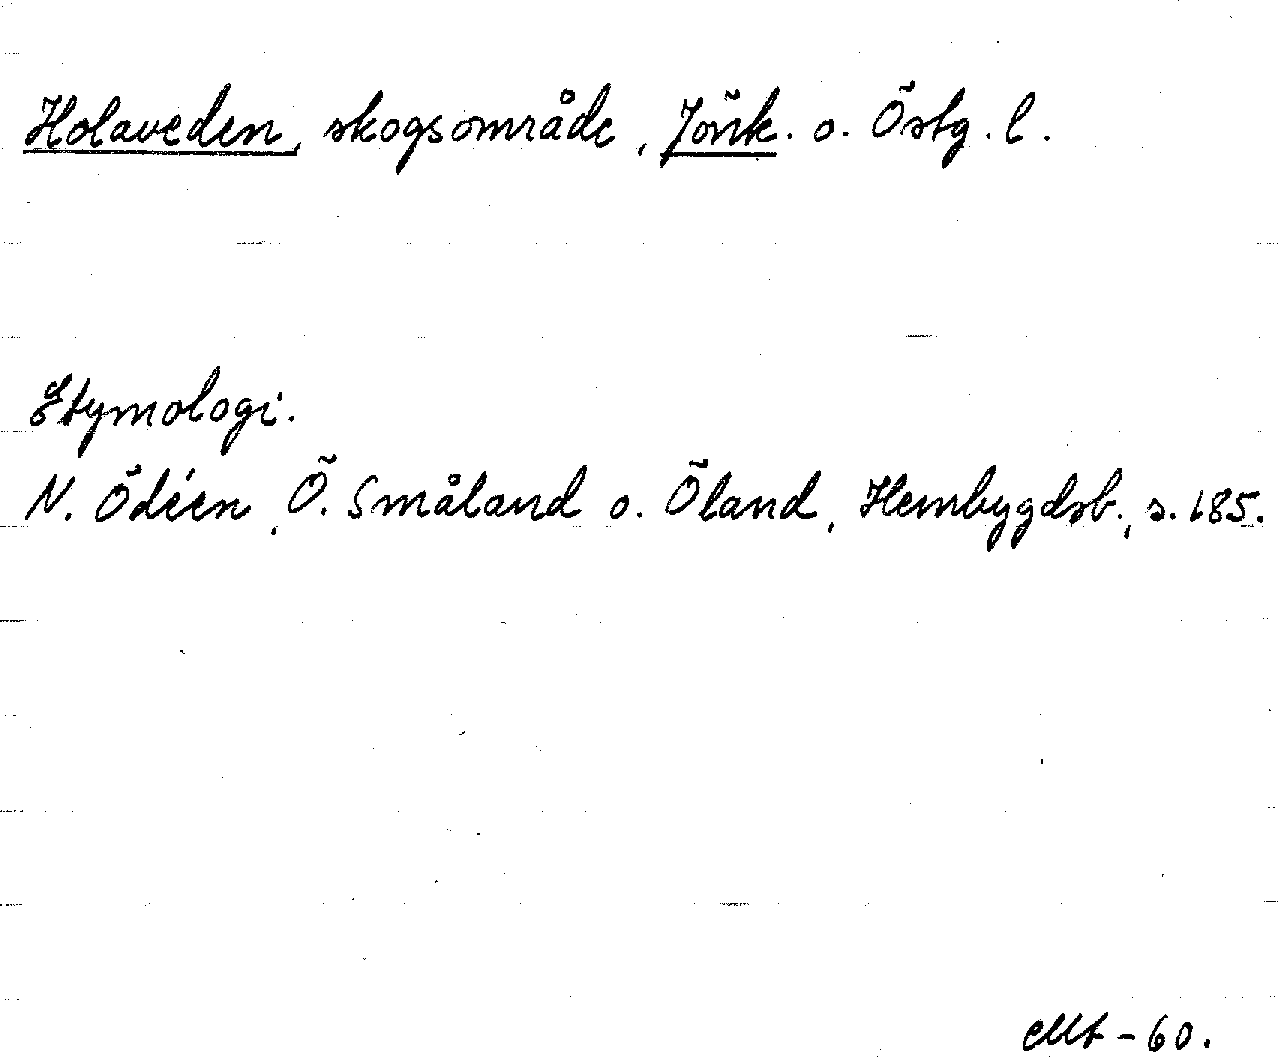 Holaveden, skogsområde, Jönk. o. Östg. l.
Etymologi.
N. Ödéen, Ö. Småland o. Öland, Hembygdsb., s. 185.
Mt - 60.